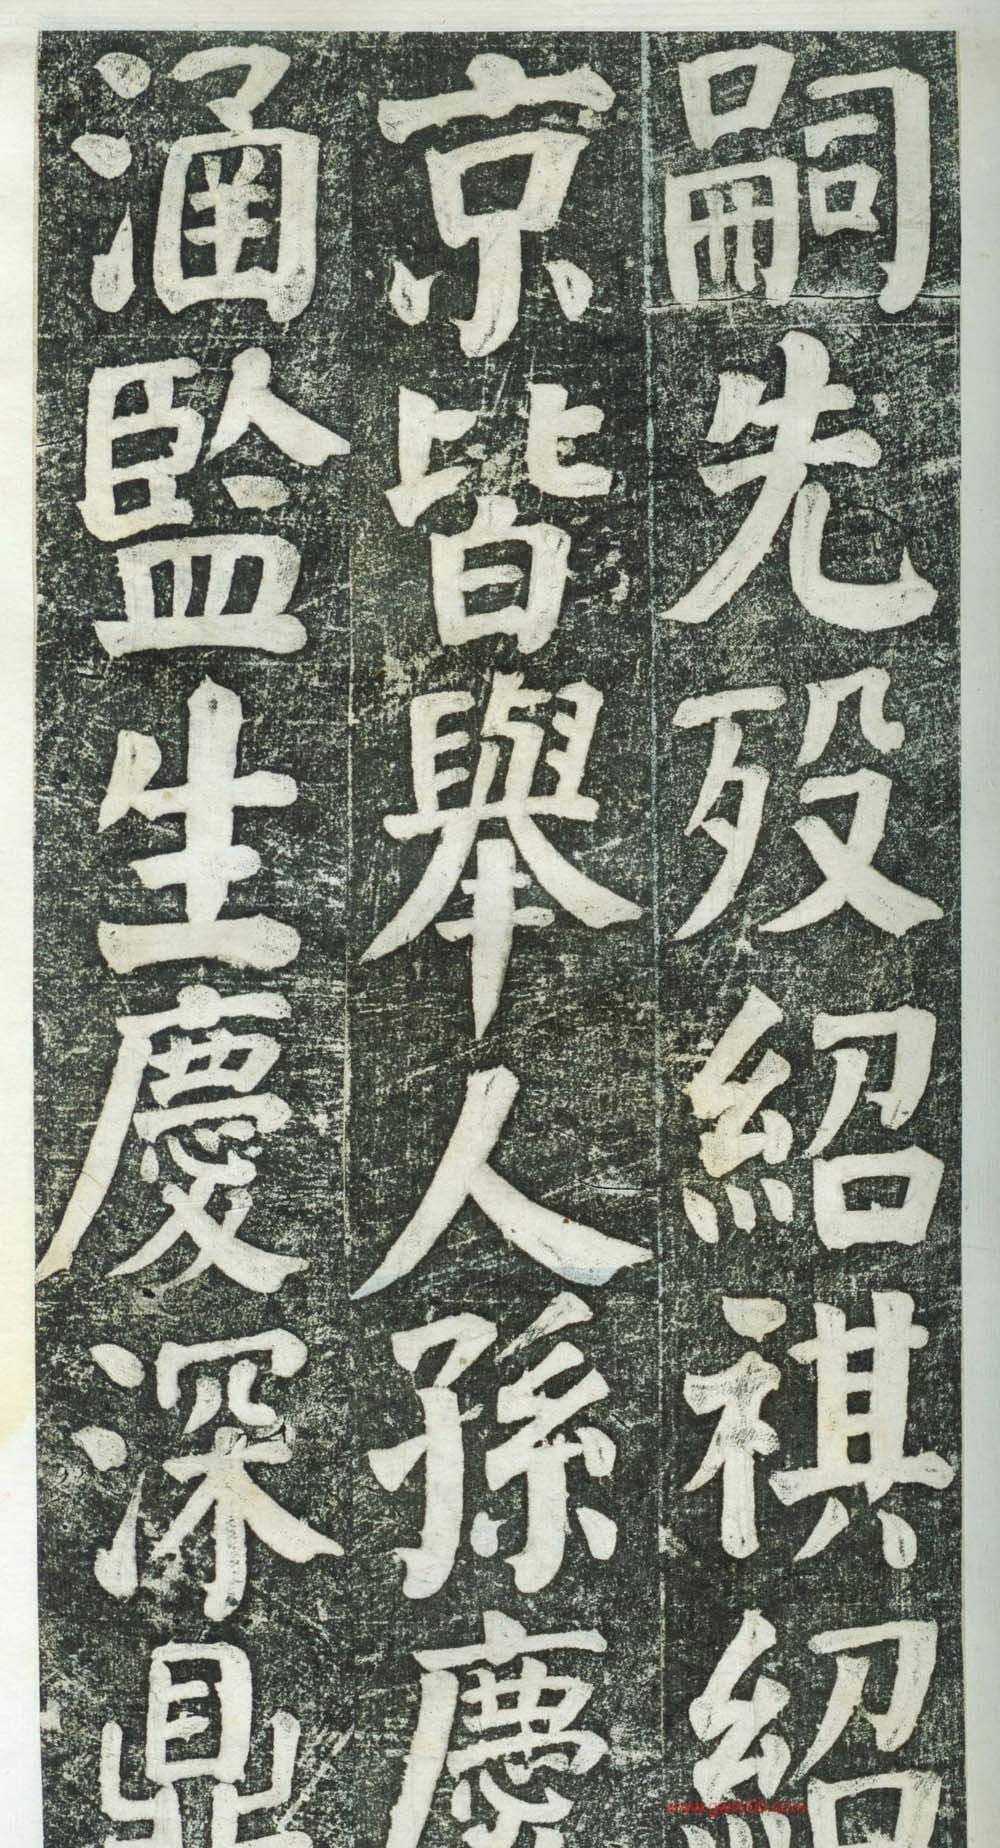 嗣先歿紹祺紹
京皆舉人孫慶
涵監生慶深鼎